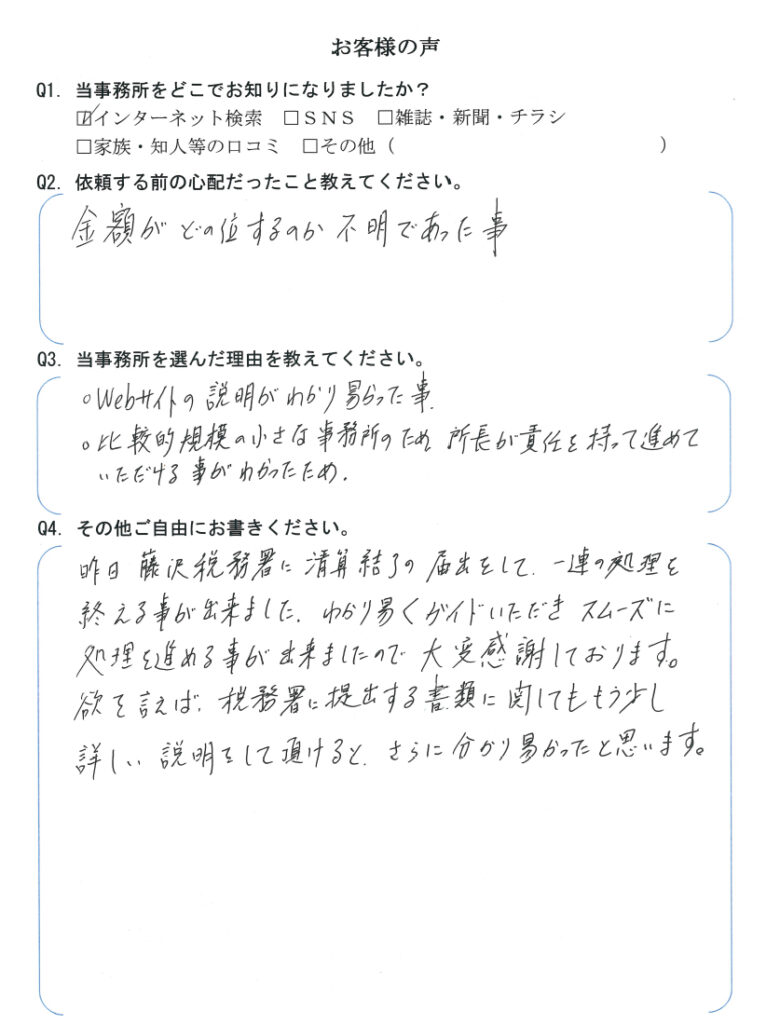 お客様の声
Q1. 当事務所をどこでお知りになりましたか？
☑インターネット検索 □ＳＮＳ □雑誌・新聞・チラシ
□家族・知人等の口コミ □その他（ ）
Q2. 依頼する前の心配だったこと教えてください。
金額がどの位するのか不明であった事
Q3. 当事務所を選んだ理由を教えてください。
○Webサイトの説明がわかり易かった事.
○比較的規模の小さな事務所のため、所長が責任を持って進めて
いただける事がわかったため.
Q4. その他ご自由にお書きください。
昨日 藤沢税務署に清算結了の届出をして、一連の処理を
終える事が出来ました. わかり易くガイドいただきスムーズに
処理を進める事が出来ましたので大変感謝しております。
欲を言えば、税務署に提出する書類に関してももう少し
詳しい説明をして頂けると、さらに分かり易かったと思います。